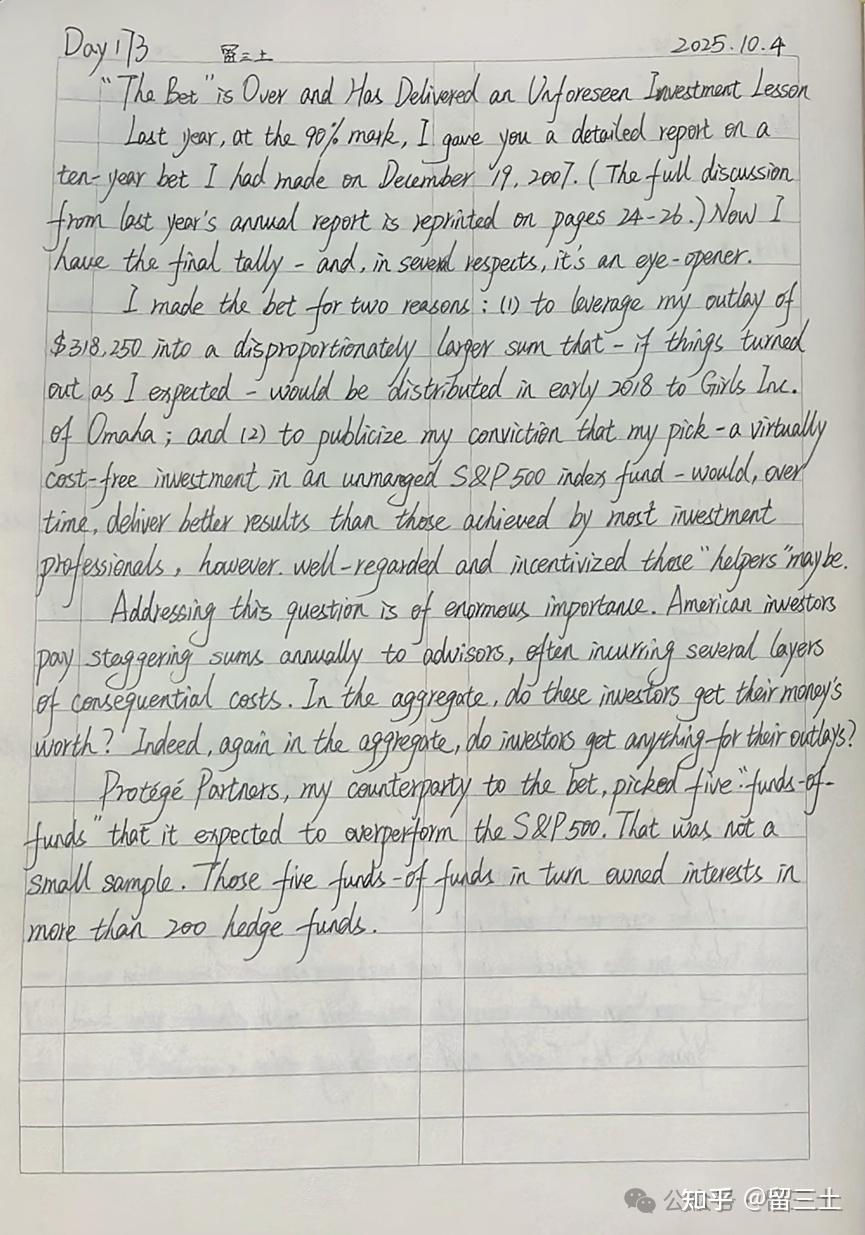 Day 173 留三土 2025.10.4
"The Bet" is Over and Has Delivered an Unforeseen Investment Lesson
Last year, at the 90% mark, I gave you a detailed report on a
ten-year bet I had made on December 19, 2007. (The full discussion
from last year's annual report is reprinted on pages 24-26.) Now I
have the final tally - and, in several respects, it's an eye-opener.
I made the bet for two reasons: (1) to leverage my outlay of
$318,250 into a disproportionately larger sum that - if things turned
out as I expected - would be distributed in early 2018 to Girls Inc.
of Omaha; and (2) to publicize my conviction that my pick - a virtually
cost-free investment in an unmanged S&P 500 index fund - would, over
time, deliver better results than those achieved by most investment
professionals, however. well-regarded and incentivized those "helpers" maybe.
Addressing this question is of enormous importance. American investors
pay staggering sums annually to advisors, often incurring several layers
of consequential costs. In the aggregate, do these investors get their money's
worth? Indeed, again in the aggregate, do investors get anything for their outlays?
Protégé Partners, my counterparty to the bet, picked five "funds-of-
funds" that it expected to overperform the S&P 500. That was not a
small sample. Those five funds-of funds in turn owned interests in
more than 200 hedge funds.
知乎 @留三土